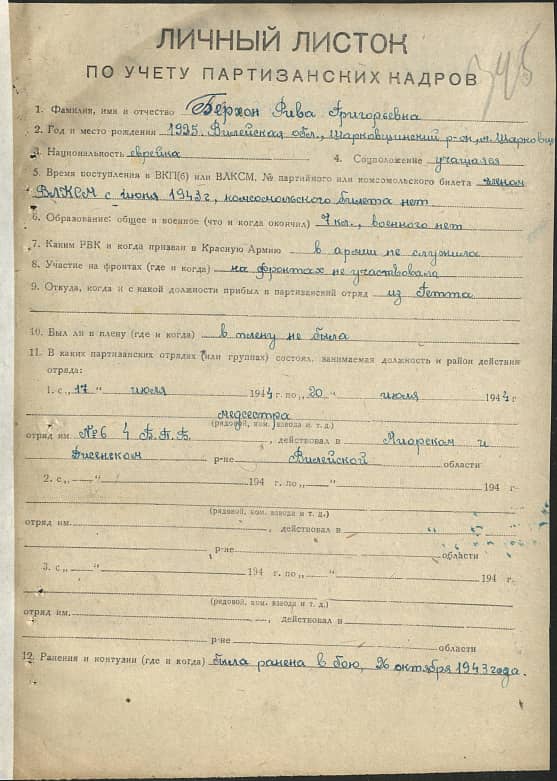 345
ЛИЧНЫЙ ЛИСТОК
ПО УЧЕТУ ПАРТИЗАНСКИХ КАДРОВ
1. Фамилия, имя и отчество Берхон Рива Григорьевна
2. Год и место рождения 1925. Вилейская обл., Шарковщинский р-он, м. Шарковщ
3. Национальность еврейка 4. Соцположение учащаяся
5. Время поступления в ВКП(б) или ВЛКСМ, № партийного или комсомольского билета членом
ВЛКСМ с июня 1943г, комсомольского билета нет
6. Образование: общее и военное (что и когда окончил) 7 кл., военного нет
7. Каким РВК и когда призван в Красную Армию в армии не служила
8. Участие на фронтах (где и когда) на фронтах не участвовала
9. Откуда, когда и с какой должности прибыл в партизанский отряд из Гетта
10. Был ли в плену (где и когда) в плену не была
11. В каких партизанских отрядах (или группах) состоял, занимаемая должность и район действия
отряда:
1. с „17“ июля 1944 г. по „20“ июля 1944 г
медсестра
(рядовой, ком. взвода и т. д.)
отряд им. №6 4 Б.П.Б. , действовал в Миорском и
Дисенском р-не Вилейской области
2. с „ “ 194 г. по „ “ 194 г.
(рядовой, ком. взвода и т. д.)
отряд им. , действовал в
р-не области
3. с „ “ 194 г. по „ “ 194 г.
(рядовой, ком. взвода и т. д.)
отряд им. , действовал в
р-не области
12. Ранения и контузии (где и когда) была ранена в бою, 26 октября 1943 года.